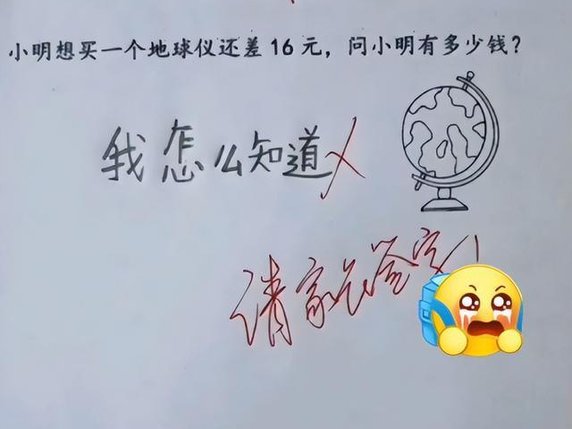 小明想买一个地球仪还差16元，问小明有多少钱？
我怎么知道
请家长签字！